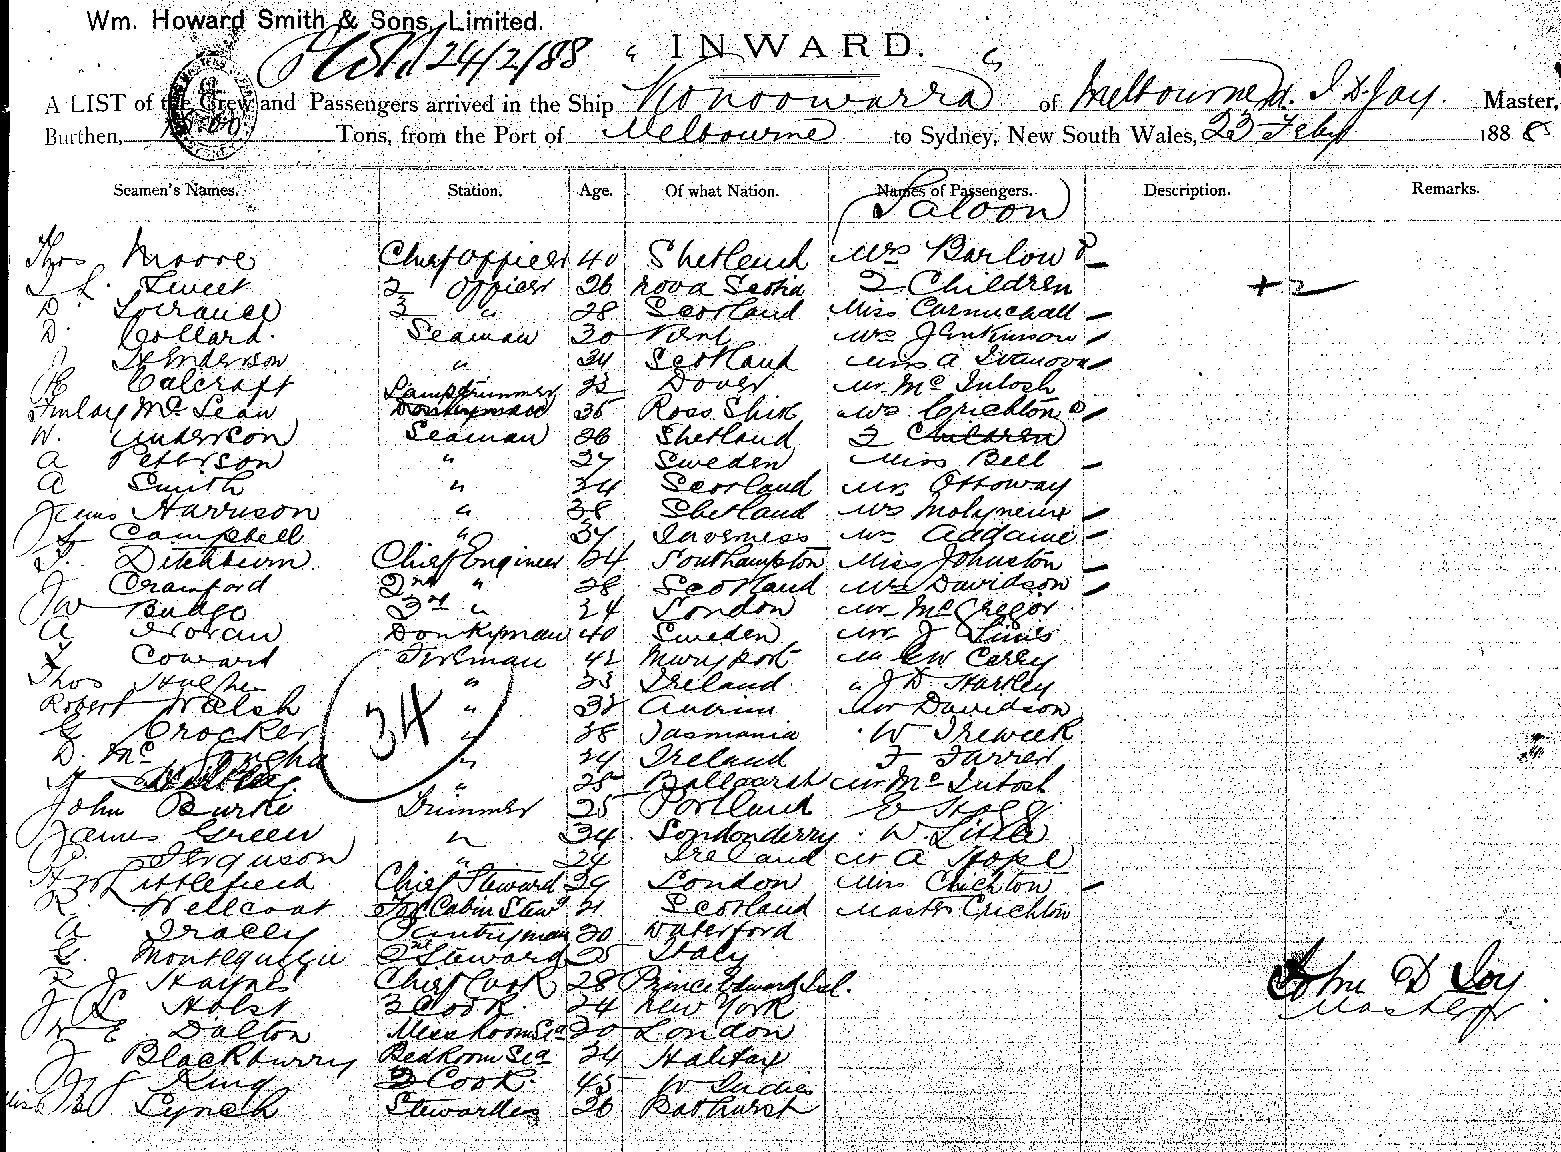 Wm. Howard Smith & Sons, Limited.
24/2/88 " INWARD. "
A LIST of the Crew and Passengers arrived in the Ship Konoowarra of Melbourne J. D. Joy. Master,
Burthen, Tons, from the Port of Melbourne to Sydney, New South Wales, 23 Feby 1888
Seamen's Names. Station. Age. Of what Nation. Names of Passengers. Description. Remarks.
Saloon
Thos Moore Chief Officer 40 Shetland Mrs Barlow &
Sweet 2 Officer 26 Nova Scotia 2 Children +2
D. Lorance 3 " 28 Scotland Miss Carmichael
D. Collard. Seaman 30 Kent Mrs Jenkinson
Henderson " 34 Scotland Miss A Ivanova
Calcraft Lamptrimmer Dover Mr McIntosh
Finlay McLean Donkeyman 36 Ross Shire Mrs Crichton &
W. Anderson Seaman 26 Shetland 2 Children
A Petterson " 27 Sweden Miss Bell
A Smith " 34 Scotland Mr Ottoway
James Harrison " 38 Shetland Mrs Molyneux
Campbell " 37 Inverness Mrs Addame
T. Ditchburn Chief Engineer Southampton Miss Johnston
J Crawford 2nd " 28 Scotland Mrs Davidson
W Budge 3rd " 24 London Mr McGregor
A Donkyman 40 Sweden Mr J Sims
Coward Fireman 42 Maryport Mr Carey
Thos Hughes " 33 Ireland " J D Hartley
Robert Walsh " Antrim Mr Davidson
G Crocker " 38 Tasmania " W Treweek
34
D. Mc " 24 Ireland F Farrer
H " 25 Ballaarat Mr McIntosh
John Burke Trimmer 25 Portland E Hogg
James Green " 34 Londonderry W. Little
Ferguson " 24 Ireland Mr A Hope
Littlefield Chief Steward 29 London Miss Crichton
R. Wellcoat For Cabin Stewd 21 Scotland Master Crichton
A Tracey Pantryman 30 Waterford
G. 2nd Steward 25 Italy
J Haynes Chief Cook 28 Prince Edward Isl.
J Holst 2 Cook 24 New York
W E Dalton Messroom 20 London
J Blackburry Bedroom 24 Halifax
King Cook 45 W Indies
Miss Lynch Stewardess 26 Bathurst
John D Joy
Master